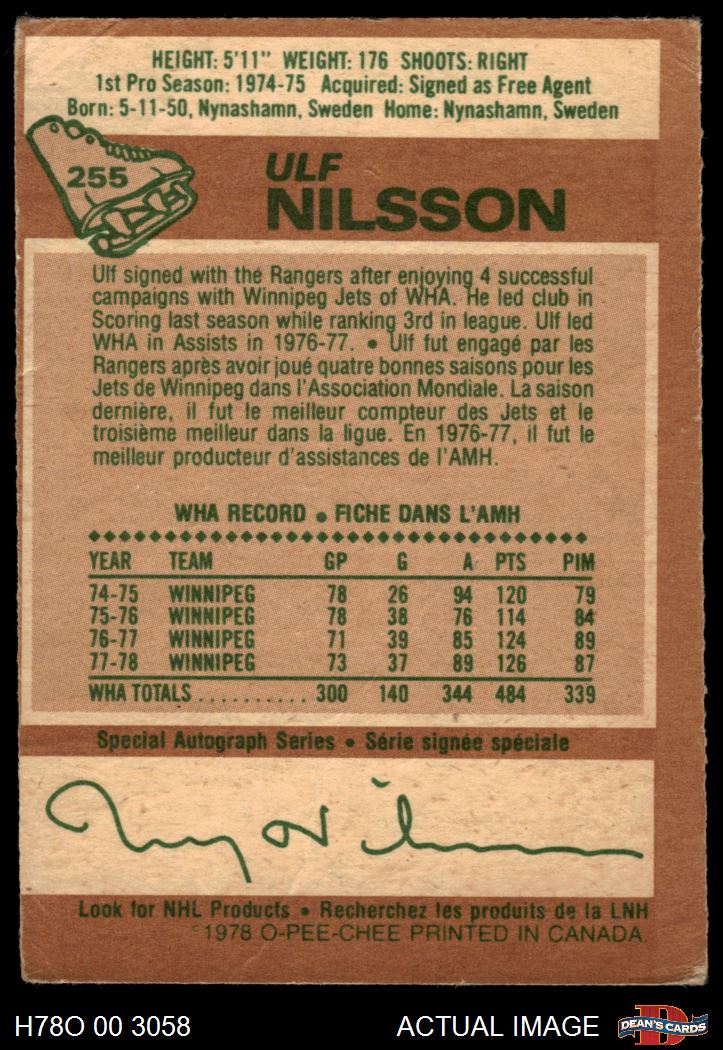 HEIGHT: 5'11" WEIGHT: 176 SHOOTS: RIGHT
1st Pro Season: 1974-75 Acquired: Signed as Free Agent
Born: 5-11-50, Nynashamn, Sweden Home: Nynashamn, Sweden
255
ULF
NILSSON
Ulf signed with the Rangers after enjoying 4 successful
campaigns with Winnipeg Jets of WHA. He led club in
Scoring last season while ranking 3rd in league. Ulf led
WHA in Assists in 1976-77. • Ulf fut engagé par les
Rangers après avoir joué quatre bonnes saisons pour les
Jets de Winnipeg dans l'Association Mondiale. La saison
dernière, il fut le meilleur compteur des Jets et le
troisième meilleur dans la ligue. En 1976-77, il fut le
meilleur producteur d'assistances de l'AMH.
WHA RECORD • FICHE DANS L'AMH
YEAR TEAM GP G A PTS PIM
74-75 WINNIPEG 78 26 94 120 79
75-76 WINNIPEG 78 38 76 114 84
76-77 WINNIPEG 71 39 85 124 89
77-78 WINNIPEG 73 37 89 126 87
WHA TOTALS .......... 300 140 344 484 339
Special Autograph Series • Série signée spéciale
Look for NHL Products • Recherchez les produits de la LNH
©1978 O-PEE-CHEE PRINTED IN CANADA.
H78O 00 3058 ACTUAL IMAGE DEAN'S CARDS